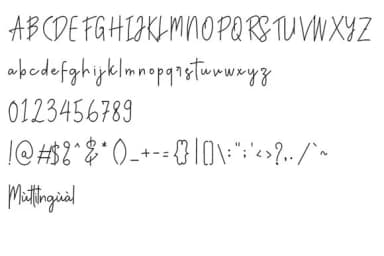 ABCDEFGHIJKLMNOPQRSTUVWXYZ
abcdefghijklmnopqrstuvwxyz
0123456789
!@#$%^&*()_+-={}|[]\:";'<>?,./`~
Mùltîlngùàl